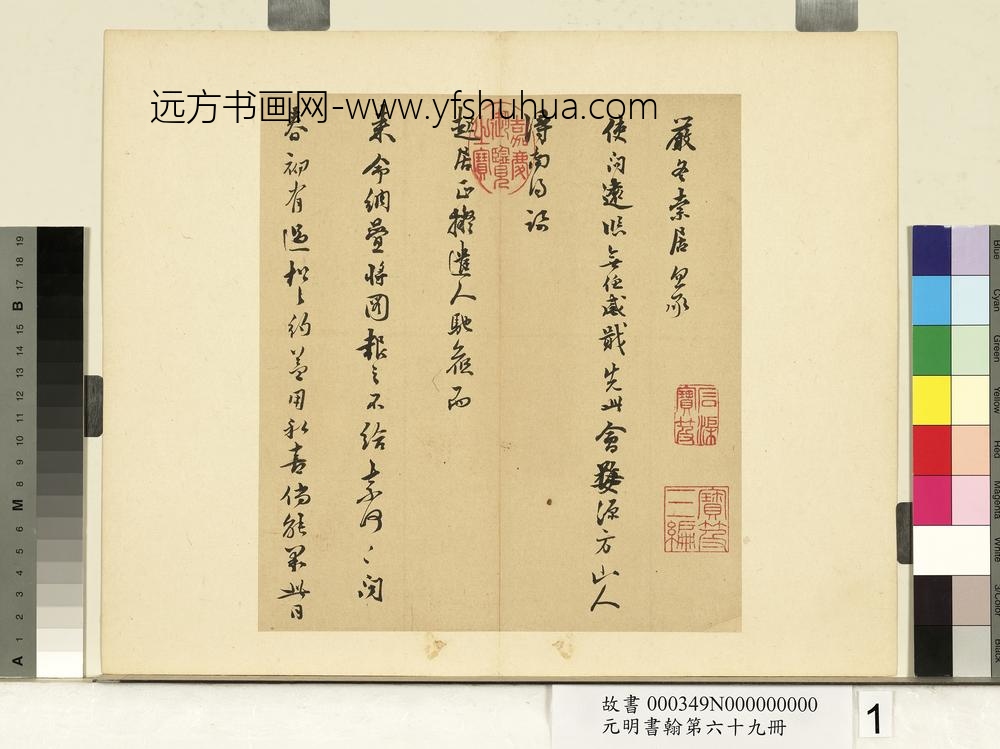 远方书画网-www.yfshuhua.com
嚴冬索居忽承
使问遠貺無任感戢先此會婺源方山人
得南
起居正擬遣人馳候而
來命稠疊將圖報之不給奈何〻闻
春初有過松之約蓋用私喜倘能果此日
嘉慶御覽之寶
石渠寶笈
寶笈三編
故書 000349N000000000
元明書翰第六十九冊
1
19
18
17
16
15
14
13
12
11
10
9
8
7
6
5
4
3
2
1
B
M
A
Blue
Cyan
Green
Yellow
Red
Magenta
White
3/Color
Black